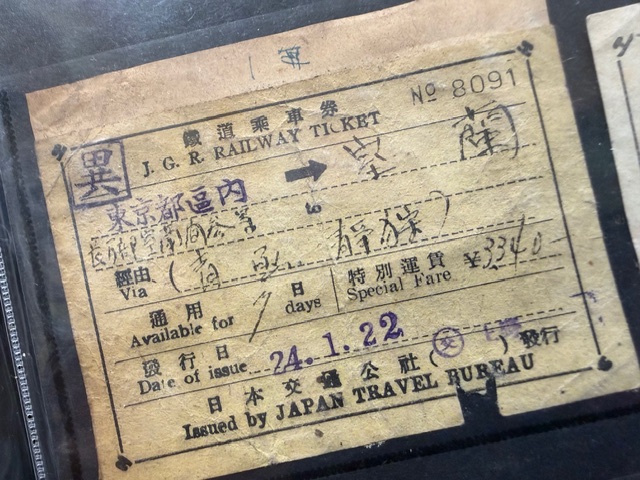 Nº 8091
鐵道乘車券
J. G. R. RAILWAY TICKET
異
東京都區内 → 室蘭
經由
Via
(青
通用
Available for
7日
days
特別運賃
Special Fare
¥3340
發行日
Date of issue
24.1.22
日本交通公社( )發行
Issued by JAPAN TRAVEL BUREAU